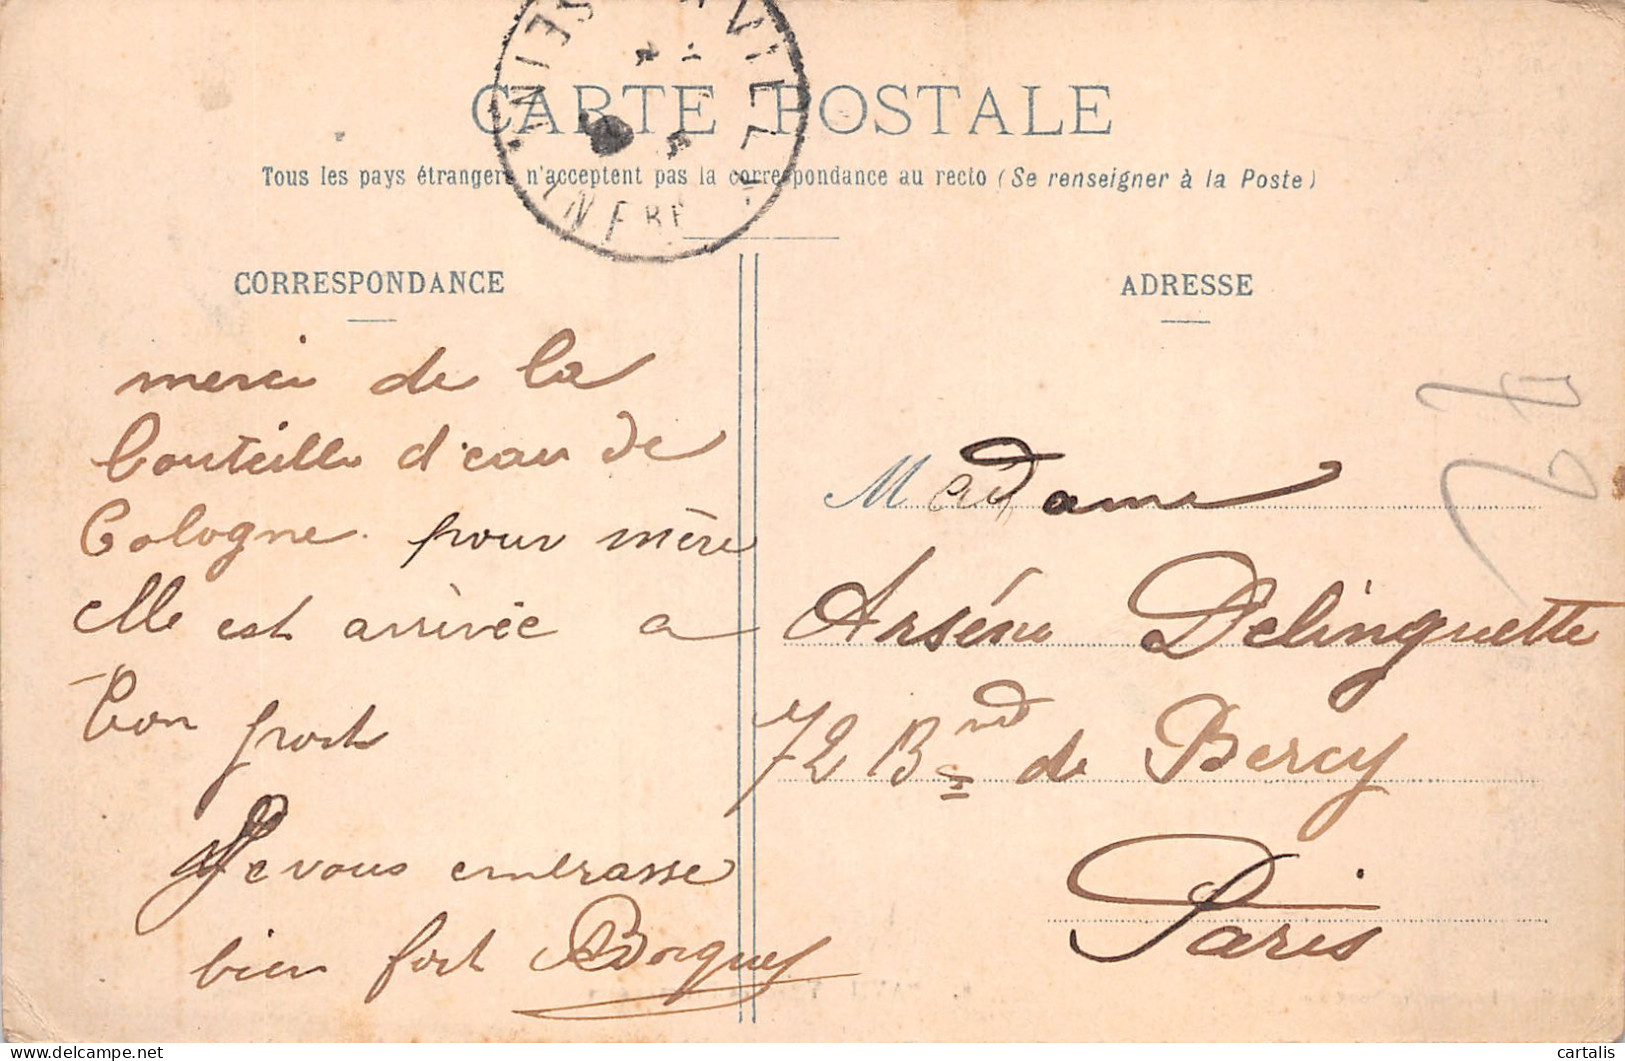 CARTE POSTALE
Tous les pays étrangers n'acceptent pas la correspondance au recto (Se renseigner à la Poste)
CORRESPONDANCE
merci de la
bouteille d'eau de
Cologne. pour mère
elle est arrivée a
bon port
Je vous embrasse
bien fort
ADRESSE
Madame
Arsène Delinguette
72 Bd de Bercy
Paris
delcampe.net
cartalis